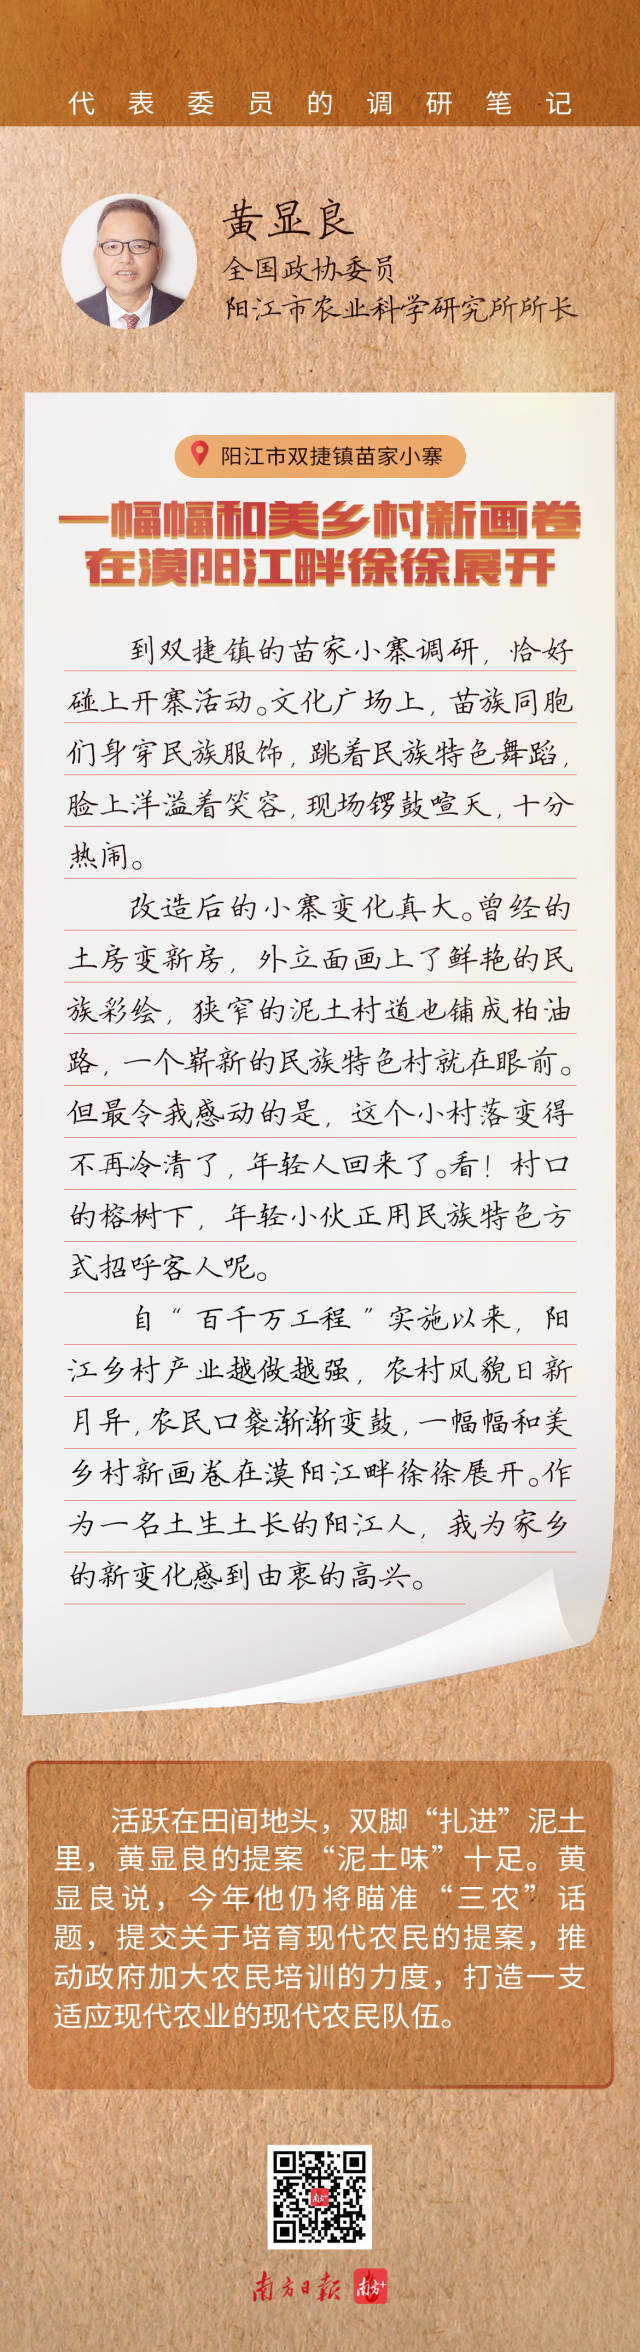 代表委员的调研笔记
黄显良
全国政协委员
阳江市农业科学研究所所长
阳江市双捷镇苗家小寨
一幅幅和美乡村新画卷
在漠阳江畔徐徐展开
到双捷镇的苗家小寨调研，恰好
碰上开寨活动。文化广场上，苗族同胞
们身穿民族服饰，跳着民族特色舞蹈，
脸上洋溢着笑容，现场锣鼓喧天，十分
热闹。
改造后的小寨变化真大。曾经的
土房变新房，外立面画上了鲜艳的民
族彩绘，狭窄的泥土村道也铺成柏油
路，一个崭新的民族特色村就在眼前。
但最令我感动的是，这个小村落变得
不再冷清了，年轻人回来了。看！村口
的榕树下，年轻小伙正用民族特色方
式招呼客人呢。
自“百千万工程”实施以来，阳
江乡村产业越做越强，农村风貌日新
月异，农民口袋渐渐变鼓，一幅幅和美
乡村新画卷在漠阳江畔徐徐展开。作
为一名土生土长的阳江人，我为家乡
的新变化感到由衷的高兴。
活跃在田间地头，双脚“扎进”泥土
里，黄显良的提案“泥土味”十足。黄
显良说，今年他仍将瞄准“三农”话
题，提交关于培育现代农民的提案，推
动政府加大农民培训的力度，打造一支
适应现代农业的现代农民队伍。
南方+
南方日报 南方+